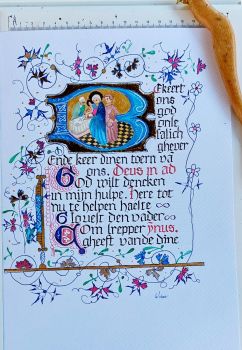 Bekeert
ons
god
onse
salich
ghever
Ende keer dinen toern vā
ons. Deus in ad
God wilt dencken
in mijn hulpe. Here tot
mi te helpen haeste
Glovest den vader
Com scepper ynus.
gheest vande dine